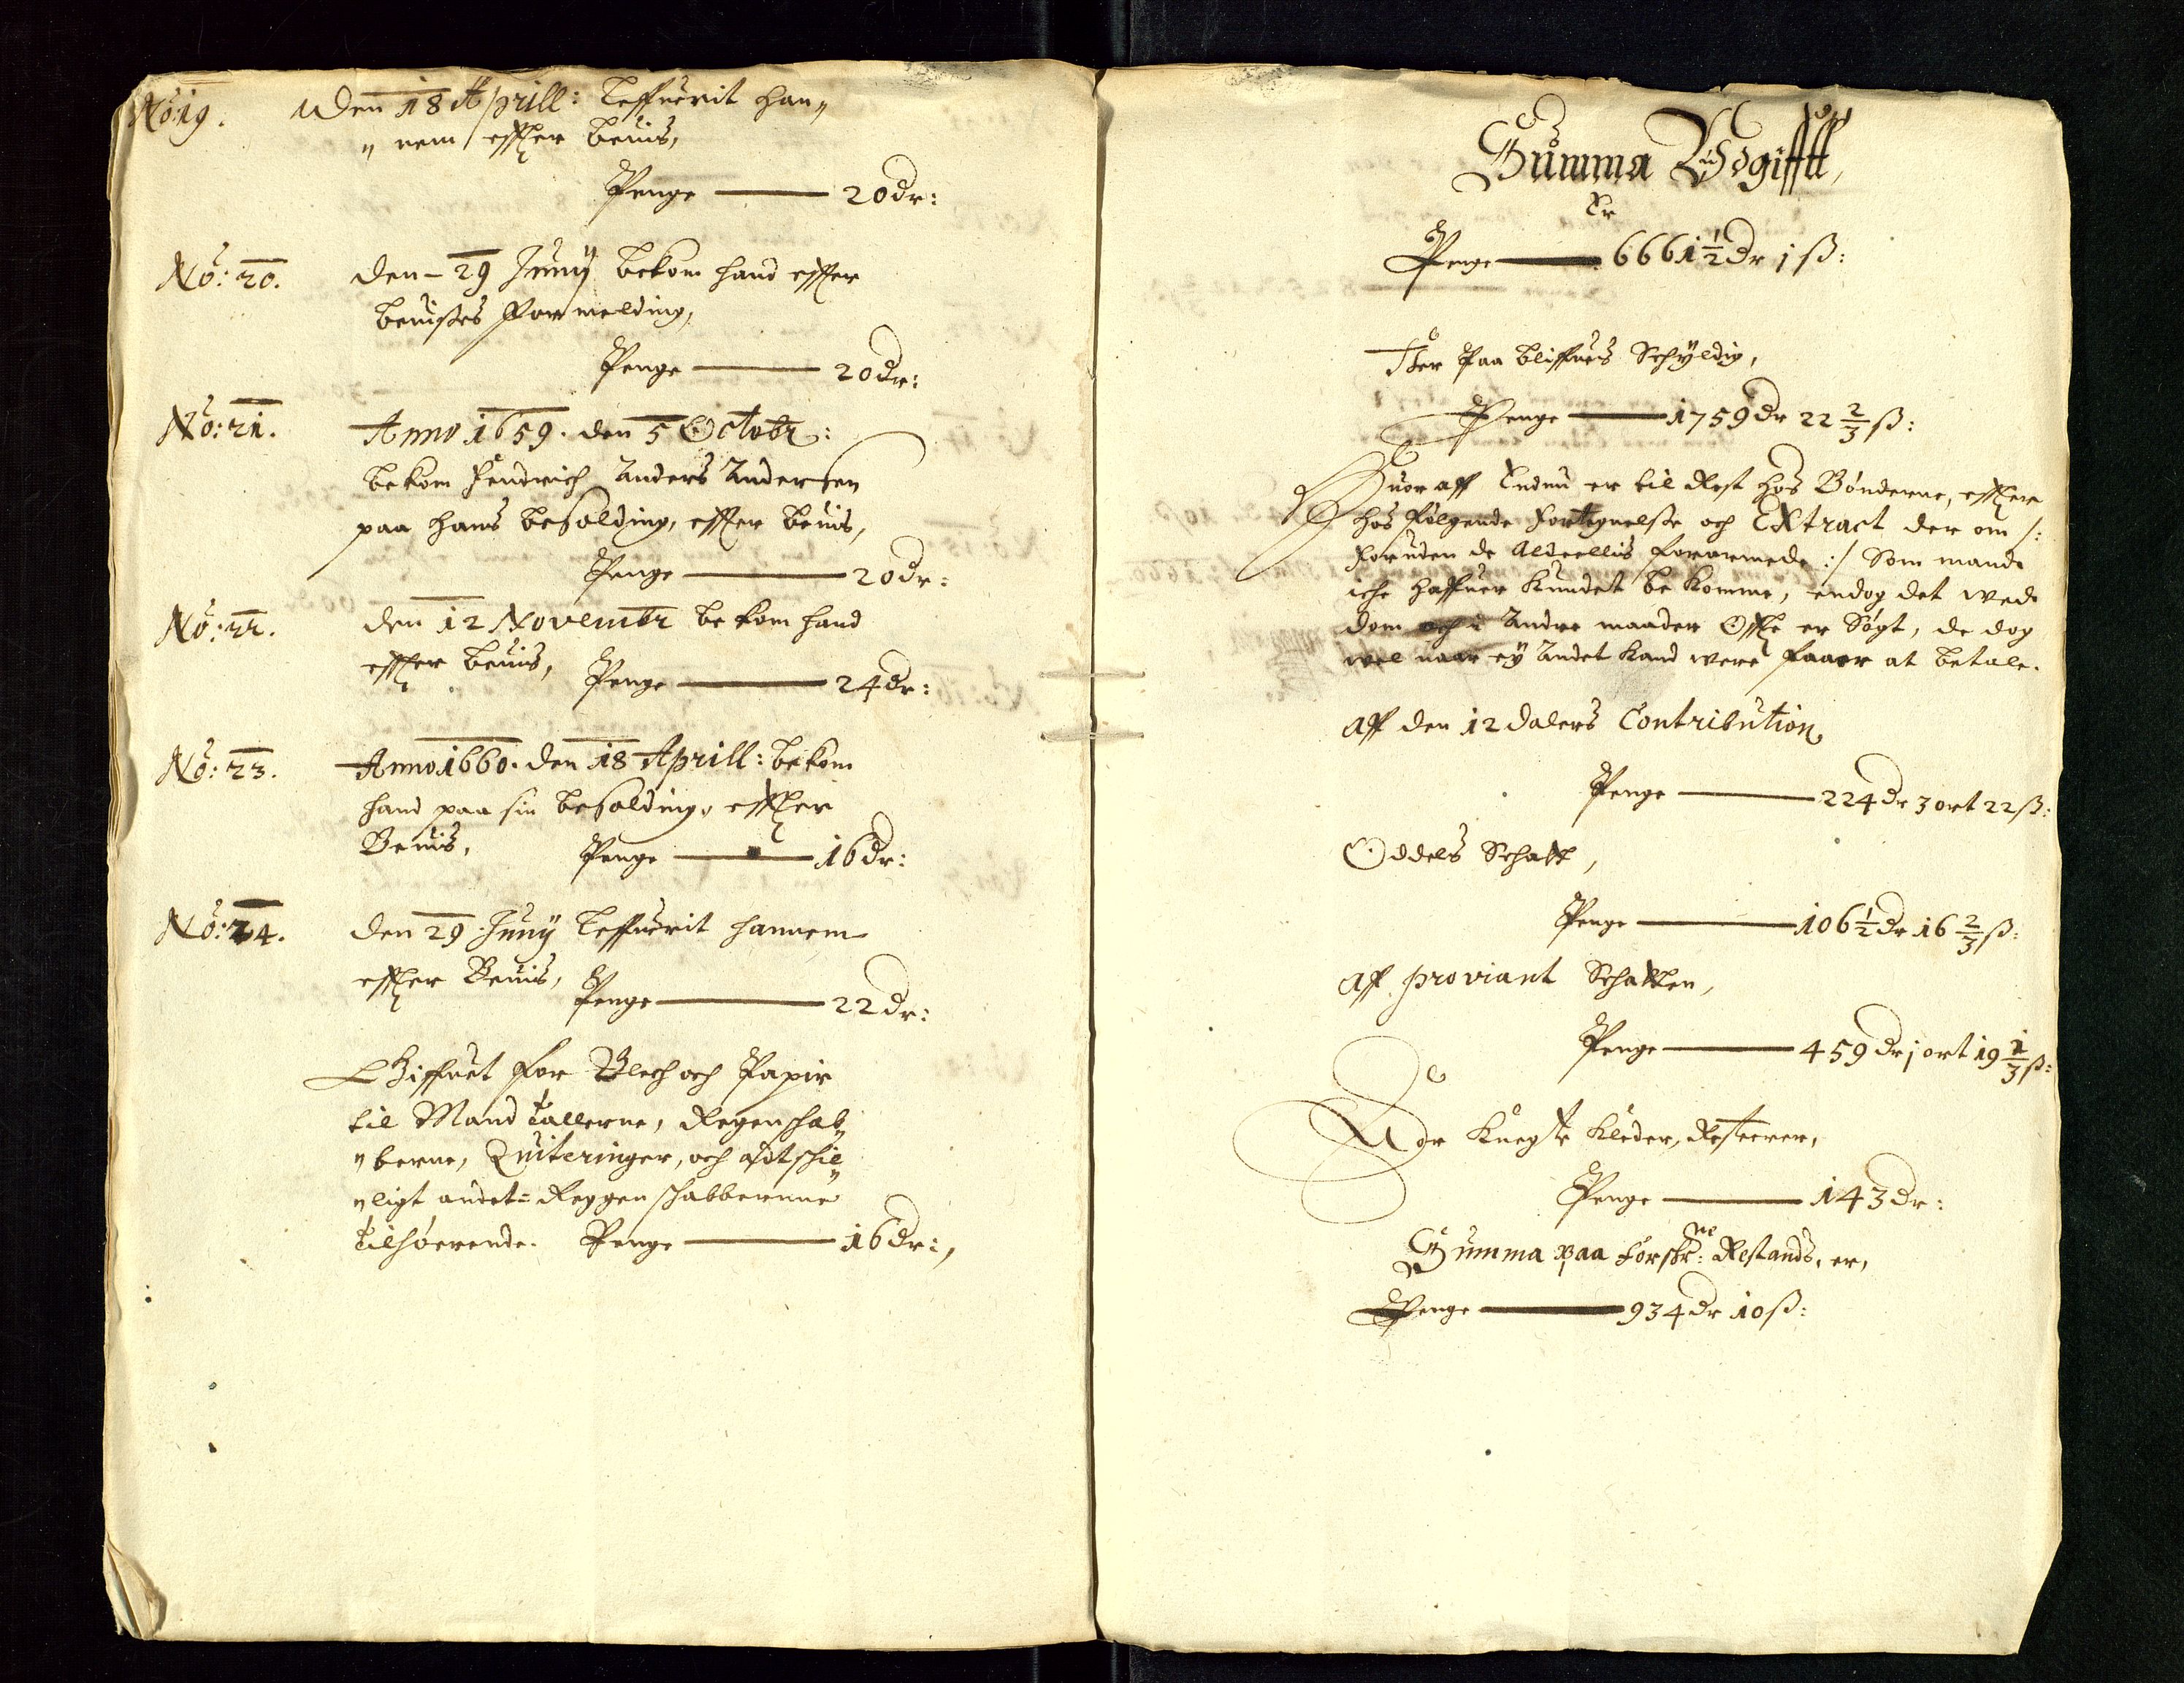 No: 19. Den 18 Aprill: Leffuerit han„
„nem effter beuis,
Penge — 20 dr:
No: 20. Den 29 Junij bekom hand effter
beuisses formelding,
Penge — 20 dr:
No: 21. Anno 1659. den 5 Octobr:
bekom Hendrich Anders Andersen
paa hans besolding, effter beuis,
Penge — 20 dr:
No: 22. den 12 Novembr bekom hand
effter beuis, Penge — 24 dr:
No: 23. Anno 1660. den 18 Aprill: bekom
hand paa sin besolding, effter
Beuis, Penge — 16 dr:
No: 24. den 29 Junij Leffuerit hannem
effter Beuis, Penge — 22 dr:
Giffuet for Blech och Papir
til Mandtallerne, Regenschab„
„berne, Quiteringer, och adtschil„
„ligt andet Reggenschabbernne
tilhørende. Penge — 16 dr:,
Summa Wdgifftt,
Er
Penge — 6661 1/2 dr 1 ß:
Ther paa bliffues Schyldig,
Penge — 1759 dr 22 2/3 ß:
Huor aff Endnu er til Rest hos Bønderne, effter
hos følgende Fortegnelsse och Extract der om /:
foruden de Aldeellis forarmede :/ Som mand
iche haffuer kundet bekomme, endog det wed
dom och i Andre maader Offte er Søgt, de dog
wel naar ey Andet kand were faaer at betale.
Aff den 12 dalers Contribution
Penge — 224 dr 3 ort 22 ß:
Oddels Schatt,
Penge — 106 1/2 dr 16 2/3 ß:
Aff proviant Schatten,
Penge — 459 dr 1 ort 19 1/3 ß:
For Knegte Kleder, Resterer,
Penge — 143 dr:
Summa paa forschr:ne Restands, er,
Penge — 934 dr 10 ß: